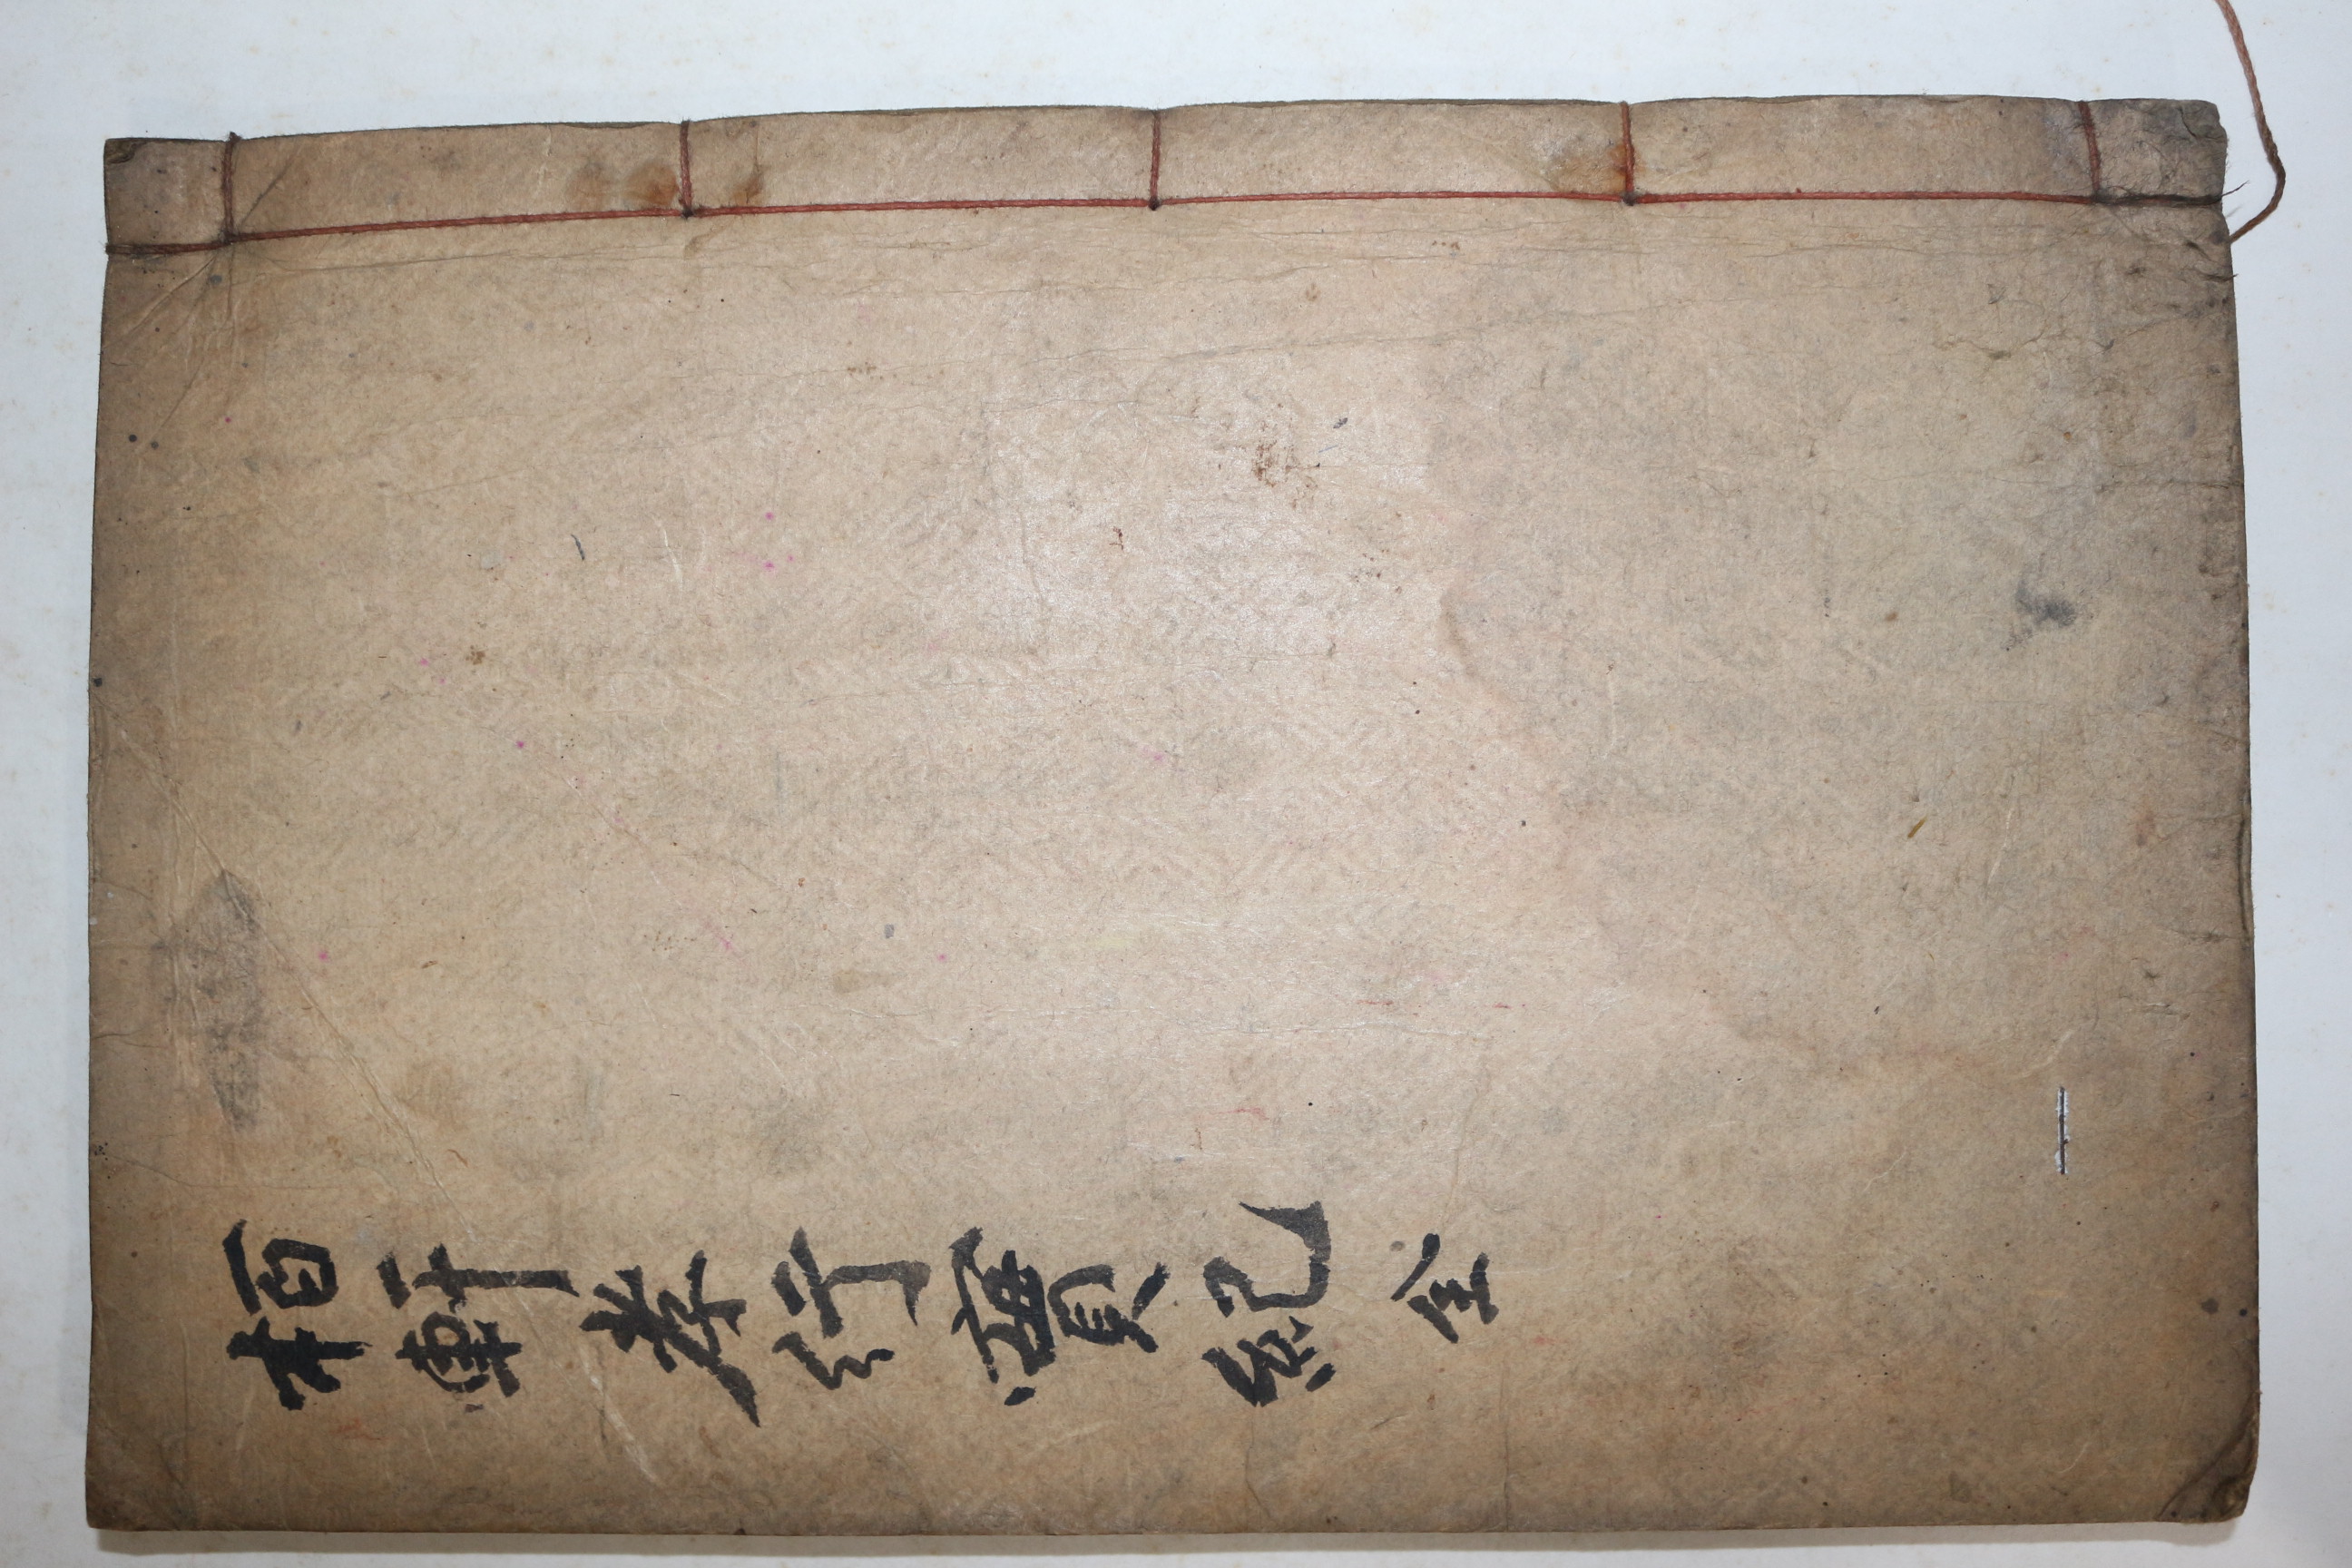 栢軒孝行實紀 全